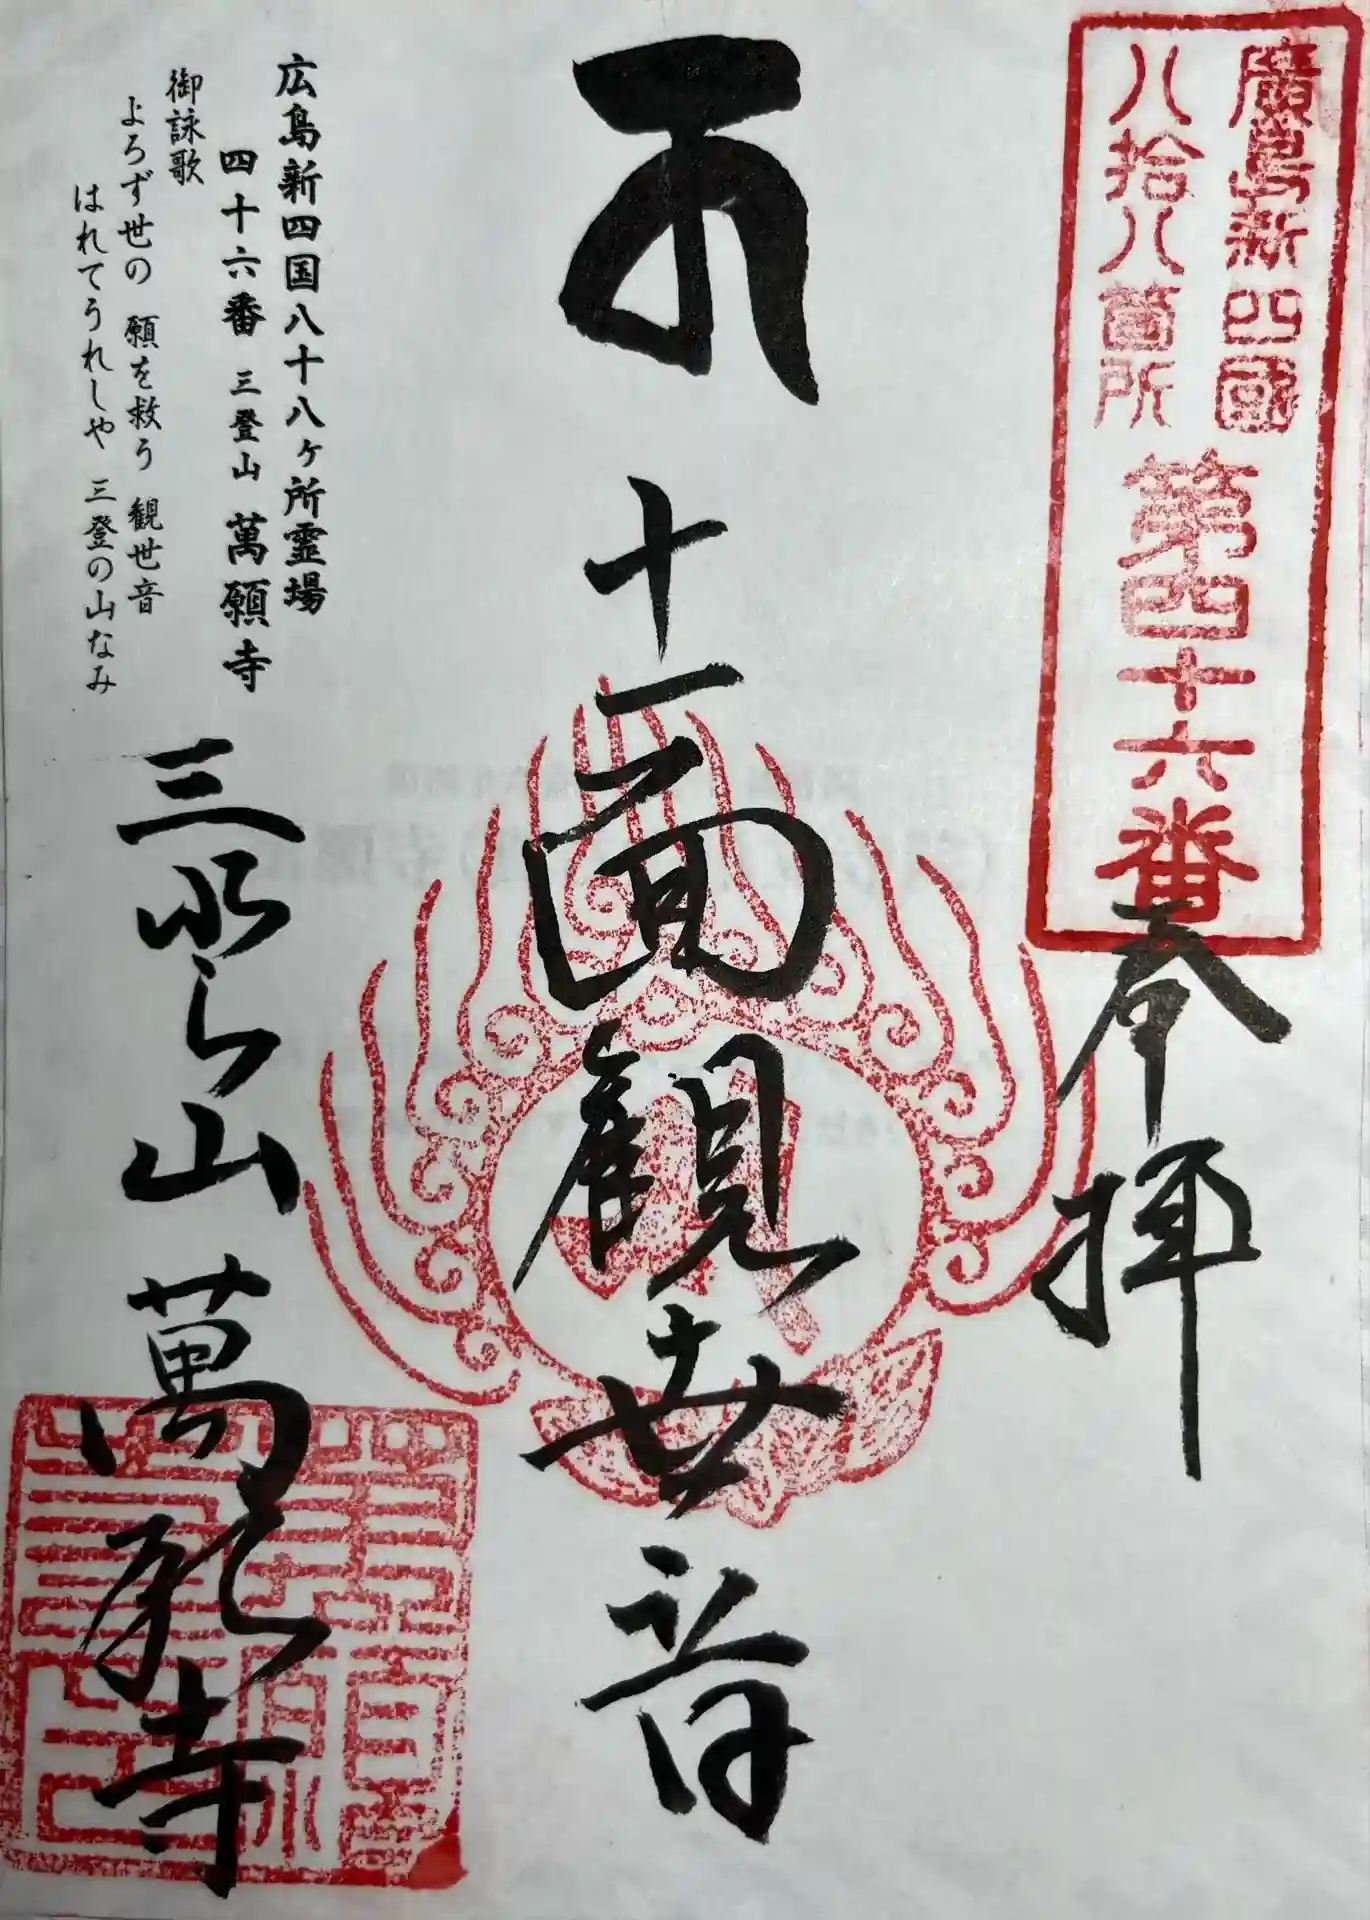 廣島新四國
八拾八箇所
第四十六番
奉拝
十一面観世音
広島新四国八十八ヶ所霊場
四十六番 三登山 萬願寺
御詠歌
よろず世の 願を救う 観世音
はれてうれしや 三登の山なみ
三登山 萬願寺
萬願寺